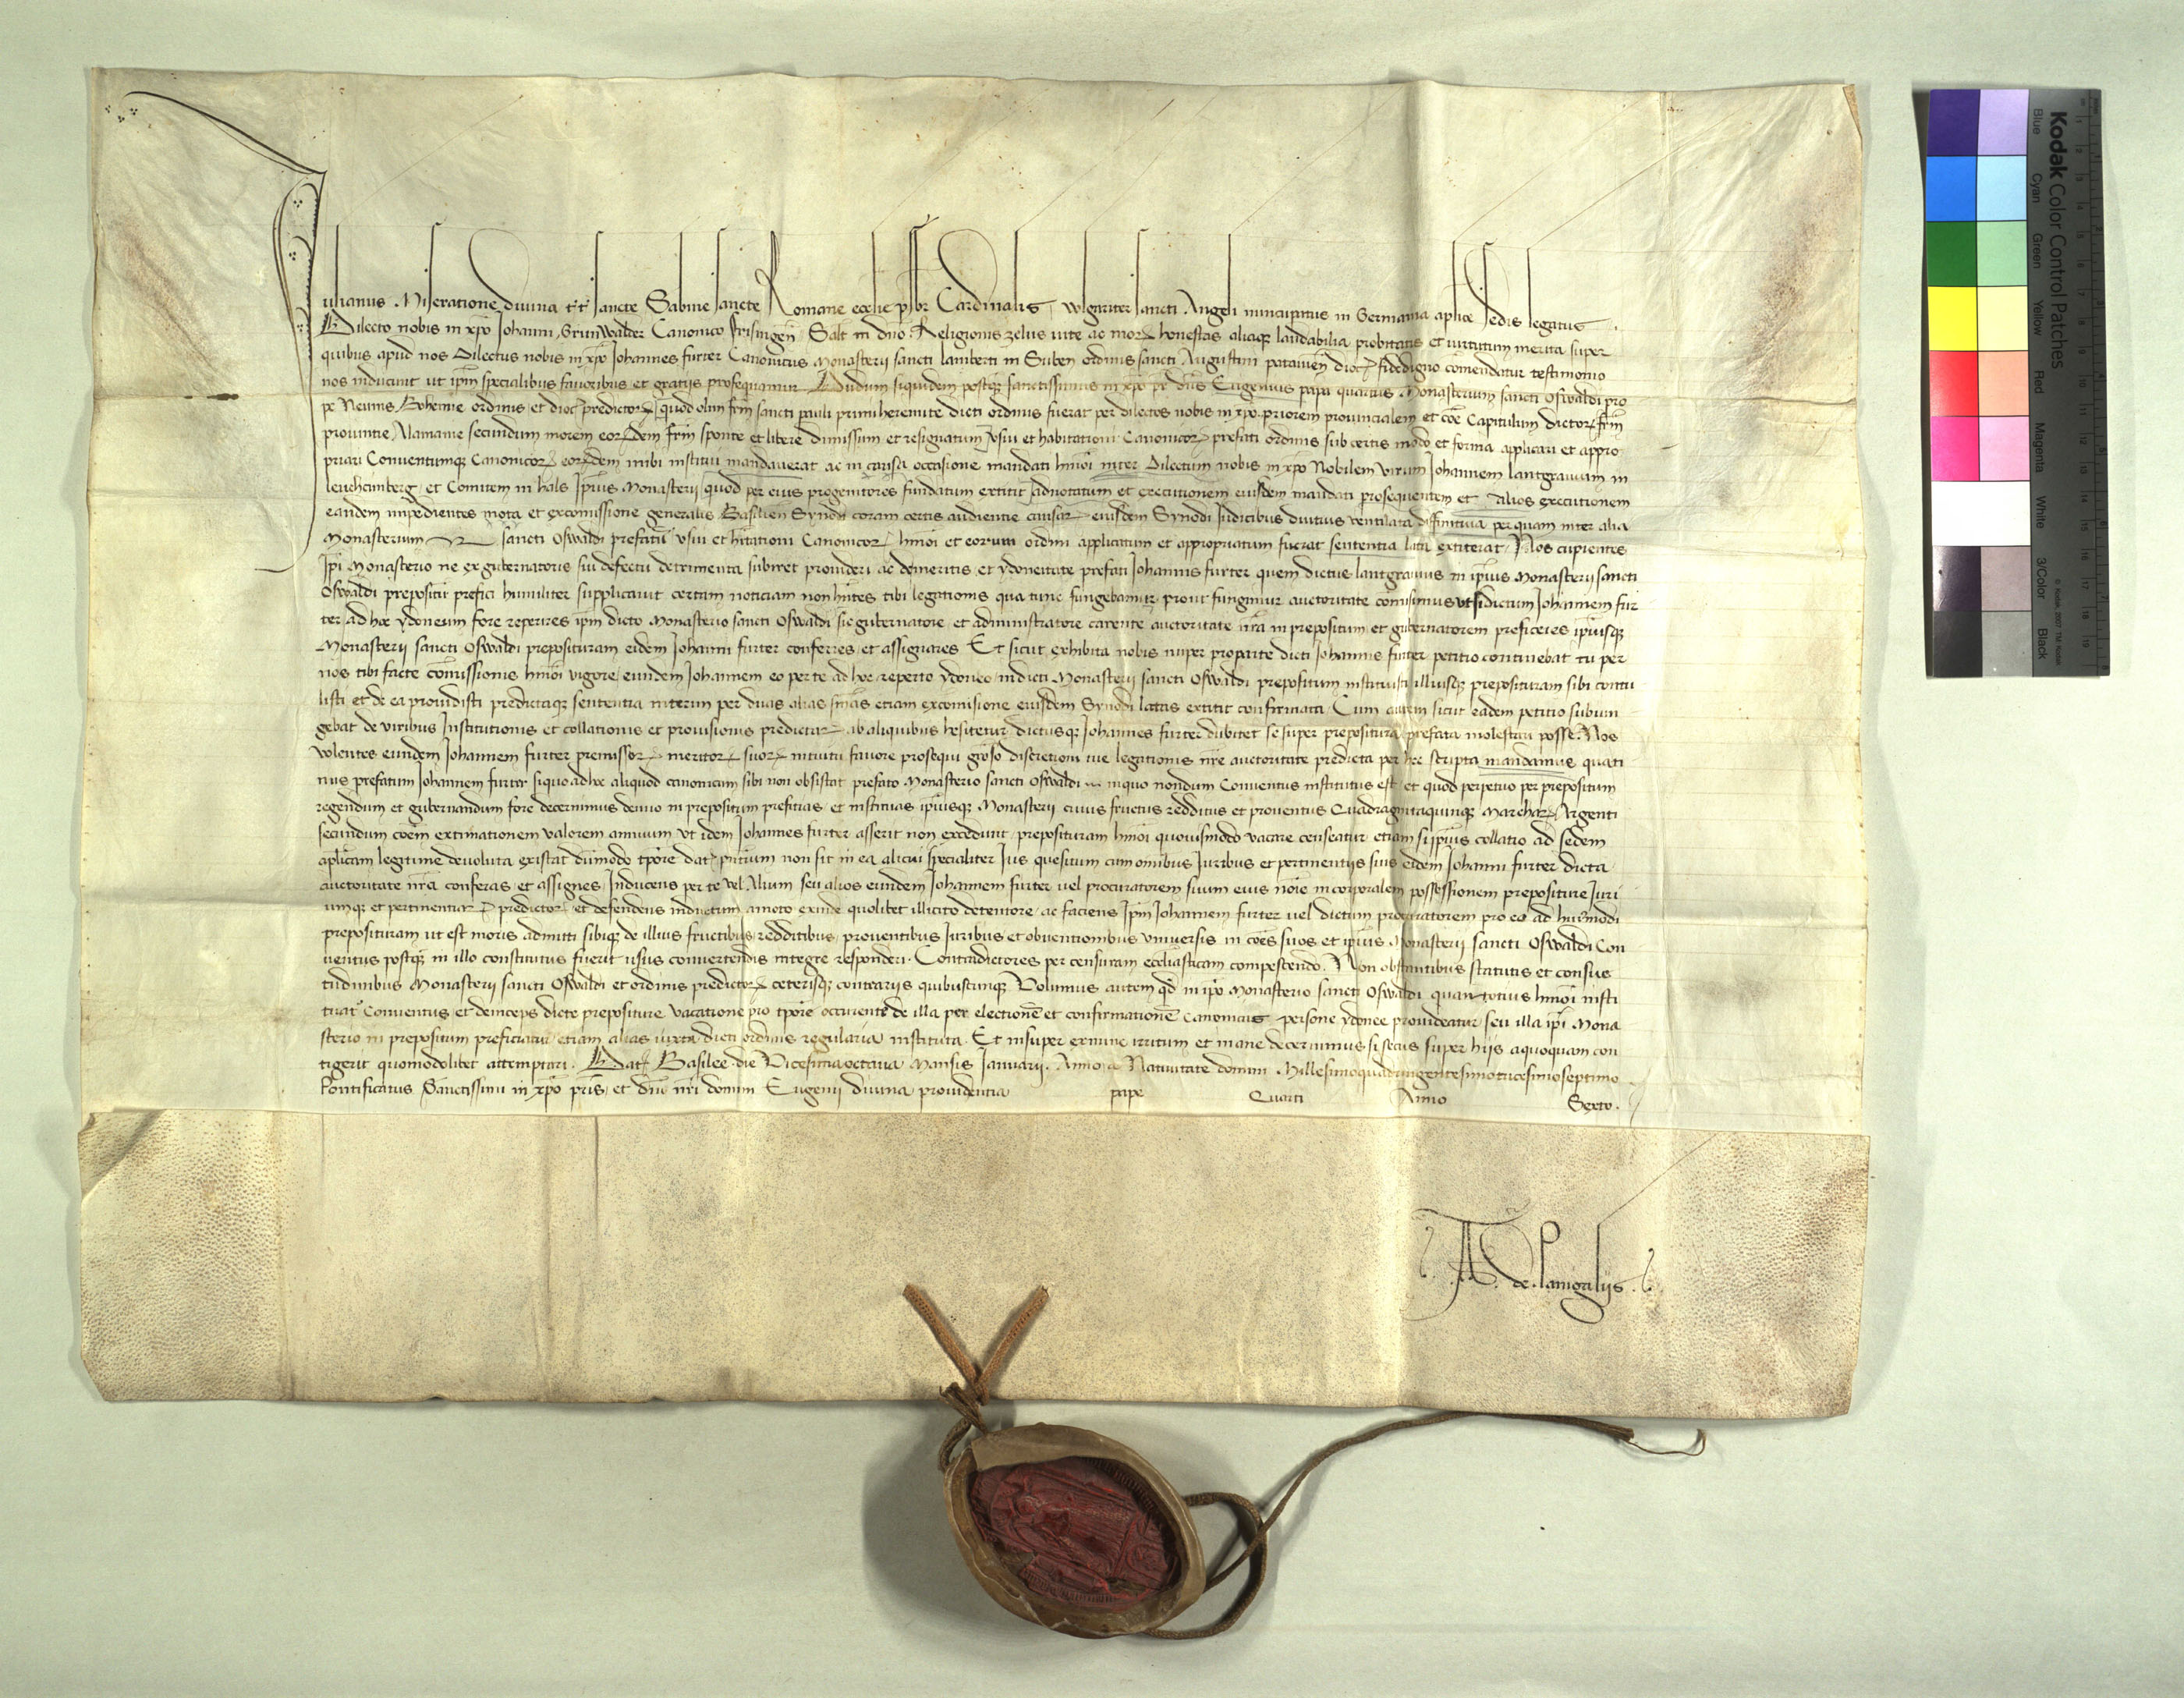 Iulianus Miseratione divina tt̃ sancte Sabine sancte Romane ecclie p̃sbr Cardinalis, wlgariter sancti Angeli nuncupatus in Germania aplice sedis legatus.
Dilecto nobis in xp̃o Johanni Grunwalder Canonico Frisingen̄ Salt̃ in dño. Religionis zelus vite ac morꝝ honestas aliaqꝫ laudabilia probitatis et virtutum merita super
quibus apud nos Dilectus nobis in xp̃o Johannes furter Canonicus Monasterii sancti lamberti in Suben ordinis sancti Augustini patavien̄ dioc̄ fidedigno comendatur testimonio
nos inducunt ut ip̃m specialibus favoribus et gratijs prosequamur. Dudum siquidem postqꝫ sanctissimus in xp̃o pr̄ dñs Eugenius papa quartus Monasterium sancti Oswaldi pro
pe Nemus Bohemie ordinis et dioc̄ predictorꝝ quod olim frm̄ sancti pauli primi heremite dicti ordinis fuerat per dilectos nobis in xp̃o priorem provincialem et cōe Capitulum dictorꝝ frm̄
provintie Alamanie secundum morem eorꝝdem frm̄ sponte et libere dimissum et resignatum Usui et habitationi Canonicorꝝ prefati ordinis sub certis modo et forma applicari et appro
priari Conventumqꝫ Canonicorꝝ eorꝝdem inibi institui mandaverat ac in causa occasione mandati hm̄oi inter Dilectum nobis in xp̃o Nobilem virum Johannem lantgravium in
leuthemberg et Comitem in hals Ip̄ius Monasterij quod per eius progenitores fundatum extitit advocatum et executionem eiusdem mandati prosequentem et alios executionem
eandem impedientes mota et ex comissione generalis Basilien̄ Synodi coram certis audientie causarꝝ eiusdem Synodi Judicibus diutius ventilata diffinitiva per quam inter alia
Monasterium sancti Oswaldi prefatū usui et hītationi Canonicorꝝ hm̄oi et eorum ordini applicatum et appropriatum fuerat sententia lata extiterat. Nos cupientes
Ip̄i Monasterio ne ex gubernatoris sui defectu detrimenta subiret provideri ac de meritis et ydoneitate prefati Johannis furter quem dictus lantgravius in ip̄ius Monasterij sancti
Oswaldi prepositū prefici humiliter supplicavit certam noticiam non hñtes tibi legationis qua tunc fungebamur prout fungimur auctoritate comisimus ut si dictum Johannem fur
ter ad hoc ydoneum fore reperires ip̃m dicto Monasterio sancti Oswaldi sic gubernatore et administratore carente auctoritate nr̄a in prepositum et gubernatorem preficeres ip̄iusqꝫ
Monasterij sancti Oswaldi preposituram eidem Johanni furter conferres et assignares. Et sicut exhibita nobis nuper pro parte dicti Johannis furter petitio continebat tu per
nos tibi facte com̄issionis hm̄oi vigore eundem Johannem eo per te ad hoc reperto ydoneo in dicti Monasterij sancti Oswaldi prepositum instituisti illiusqꝫ preposituram sibi contu
listi et de ea providisti predictaqꝫ sententia interim per duas alias sn̄ias etiam ex comisione eiusdem Synodi latas extitit confirmata. Cum autem sicut eadem petitio subiun
gebat de viribus Institutionis et collationis et provisionis predictarꝝ ab aliquibus hesitetur dictusqꝫ Johannes furter dubitet se super prepositura prefata molestari posse. Nos
volentes eundem Johannem furter premissorꝝ meritorꝝ suorꝝ intuitu favore prosequi grōso discretioni tue legationis nr̄e auctoritate predicta per hec scripta mandamus quati
nus prefatum Johannem furter si quo ad hoc aliquod canonicum sibi non obsistat prefato Monasterio sancti Oswaldi in quo nondum Conventus institutus est et quod perpetuo per prepositum
regendum et gubernandum fore decernimus denuo in prepositum preficias et instituas ip̄iusqꝫ Monasterij cuius fructus redditus et proventus Quadragintaquinqꝫ Marcharꝝ Argenti
secundum coēm extimationem valorem annuum ut idem Johannes furter asserit non excedunt preposituram hm̄oi quovismodo vacare censeatur etiam si ip̄ius collatio ad sedem
aplicam legitime devoluta existat dūmodo tp̄ore dat̄ pn̄tium non sit in ea alicui specialiter Ius quesitum cum om̄ibus Iuribus et pertinentijs suis eidem Johanni furter dicta
auctoritate nr̄a conferas et assignes Inducens per te vel Alium seu alios eundem Johannem furter vel procuratorem suum eius nōie in corporalem possessionem prepositure Juri
umqꝫ et pertinentiarꝝ predictorꝝ et defendens inductum amoto exinde quolibet illicito detentore ac faciens Ip̃m Johannem furter vel dictum procuratorem pro eo ad huiūmodi
preposituram ut est moris admitti sibiqꝫ de illius fructibus redditibus proventibus Iuribus et obventionibus universis in cōes suos et ip̄ius Monasterij sancti Oswaldi Con
ventus postqꝫ in illo constitutus fuerit usus convertendis integre responderi. Contradictores per censuram eccliasticam compescendo. Non obstantibus statutis et consue
tudinibus Monasterij sancti Oswaldi et ordinis predictorꝝ ceterisqꝫ contrarijs quibuscunqꝫ. Volumus autem qd̄ in ip̄o Monasterio sancti Oswaldi quamtotius hm̄oi insti
tuat̄ Conventus et deinceps dicte prepositure vacatione pro tp̄ore occurente de illa per electionē et confirmationē canonicas persone ydonee provideatur seu illa ip̄i Mona
sterio in prepositum preficiatur etiam alias iuxta dicti ordinis regularia instituta. Et insuper exnunc irritum et inane decernimus si secus super hijs a quoquam con
tigerit quomodolibet attemptari. Dat̄ Basilee die Vicesimaoctava Mensis Ianuarij. Anno a Nativitate domini Millesimoquadringentesimotricesimoseptimo.
Pontificatus Sanctissimi in xp̃o pr̄is et dñi nr̄i domini Eugenij divina providentia pape Quarti Anno Sexto.
A. de
Kodak Color Control Patches
Blue Cyan Green Yellow Red Magenta White 3/Color Black
© Kodak, 2007 TM: Kodak